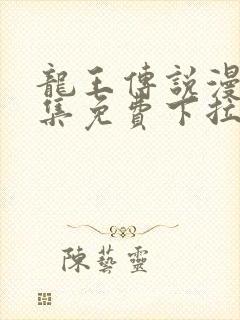 龍王傳說漫
集免費下拉
陳藝靈